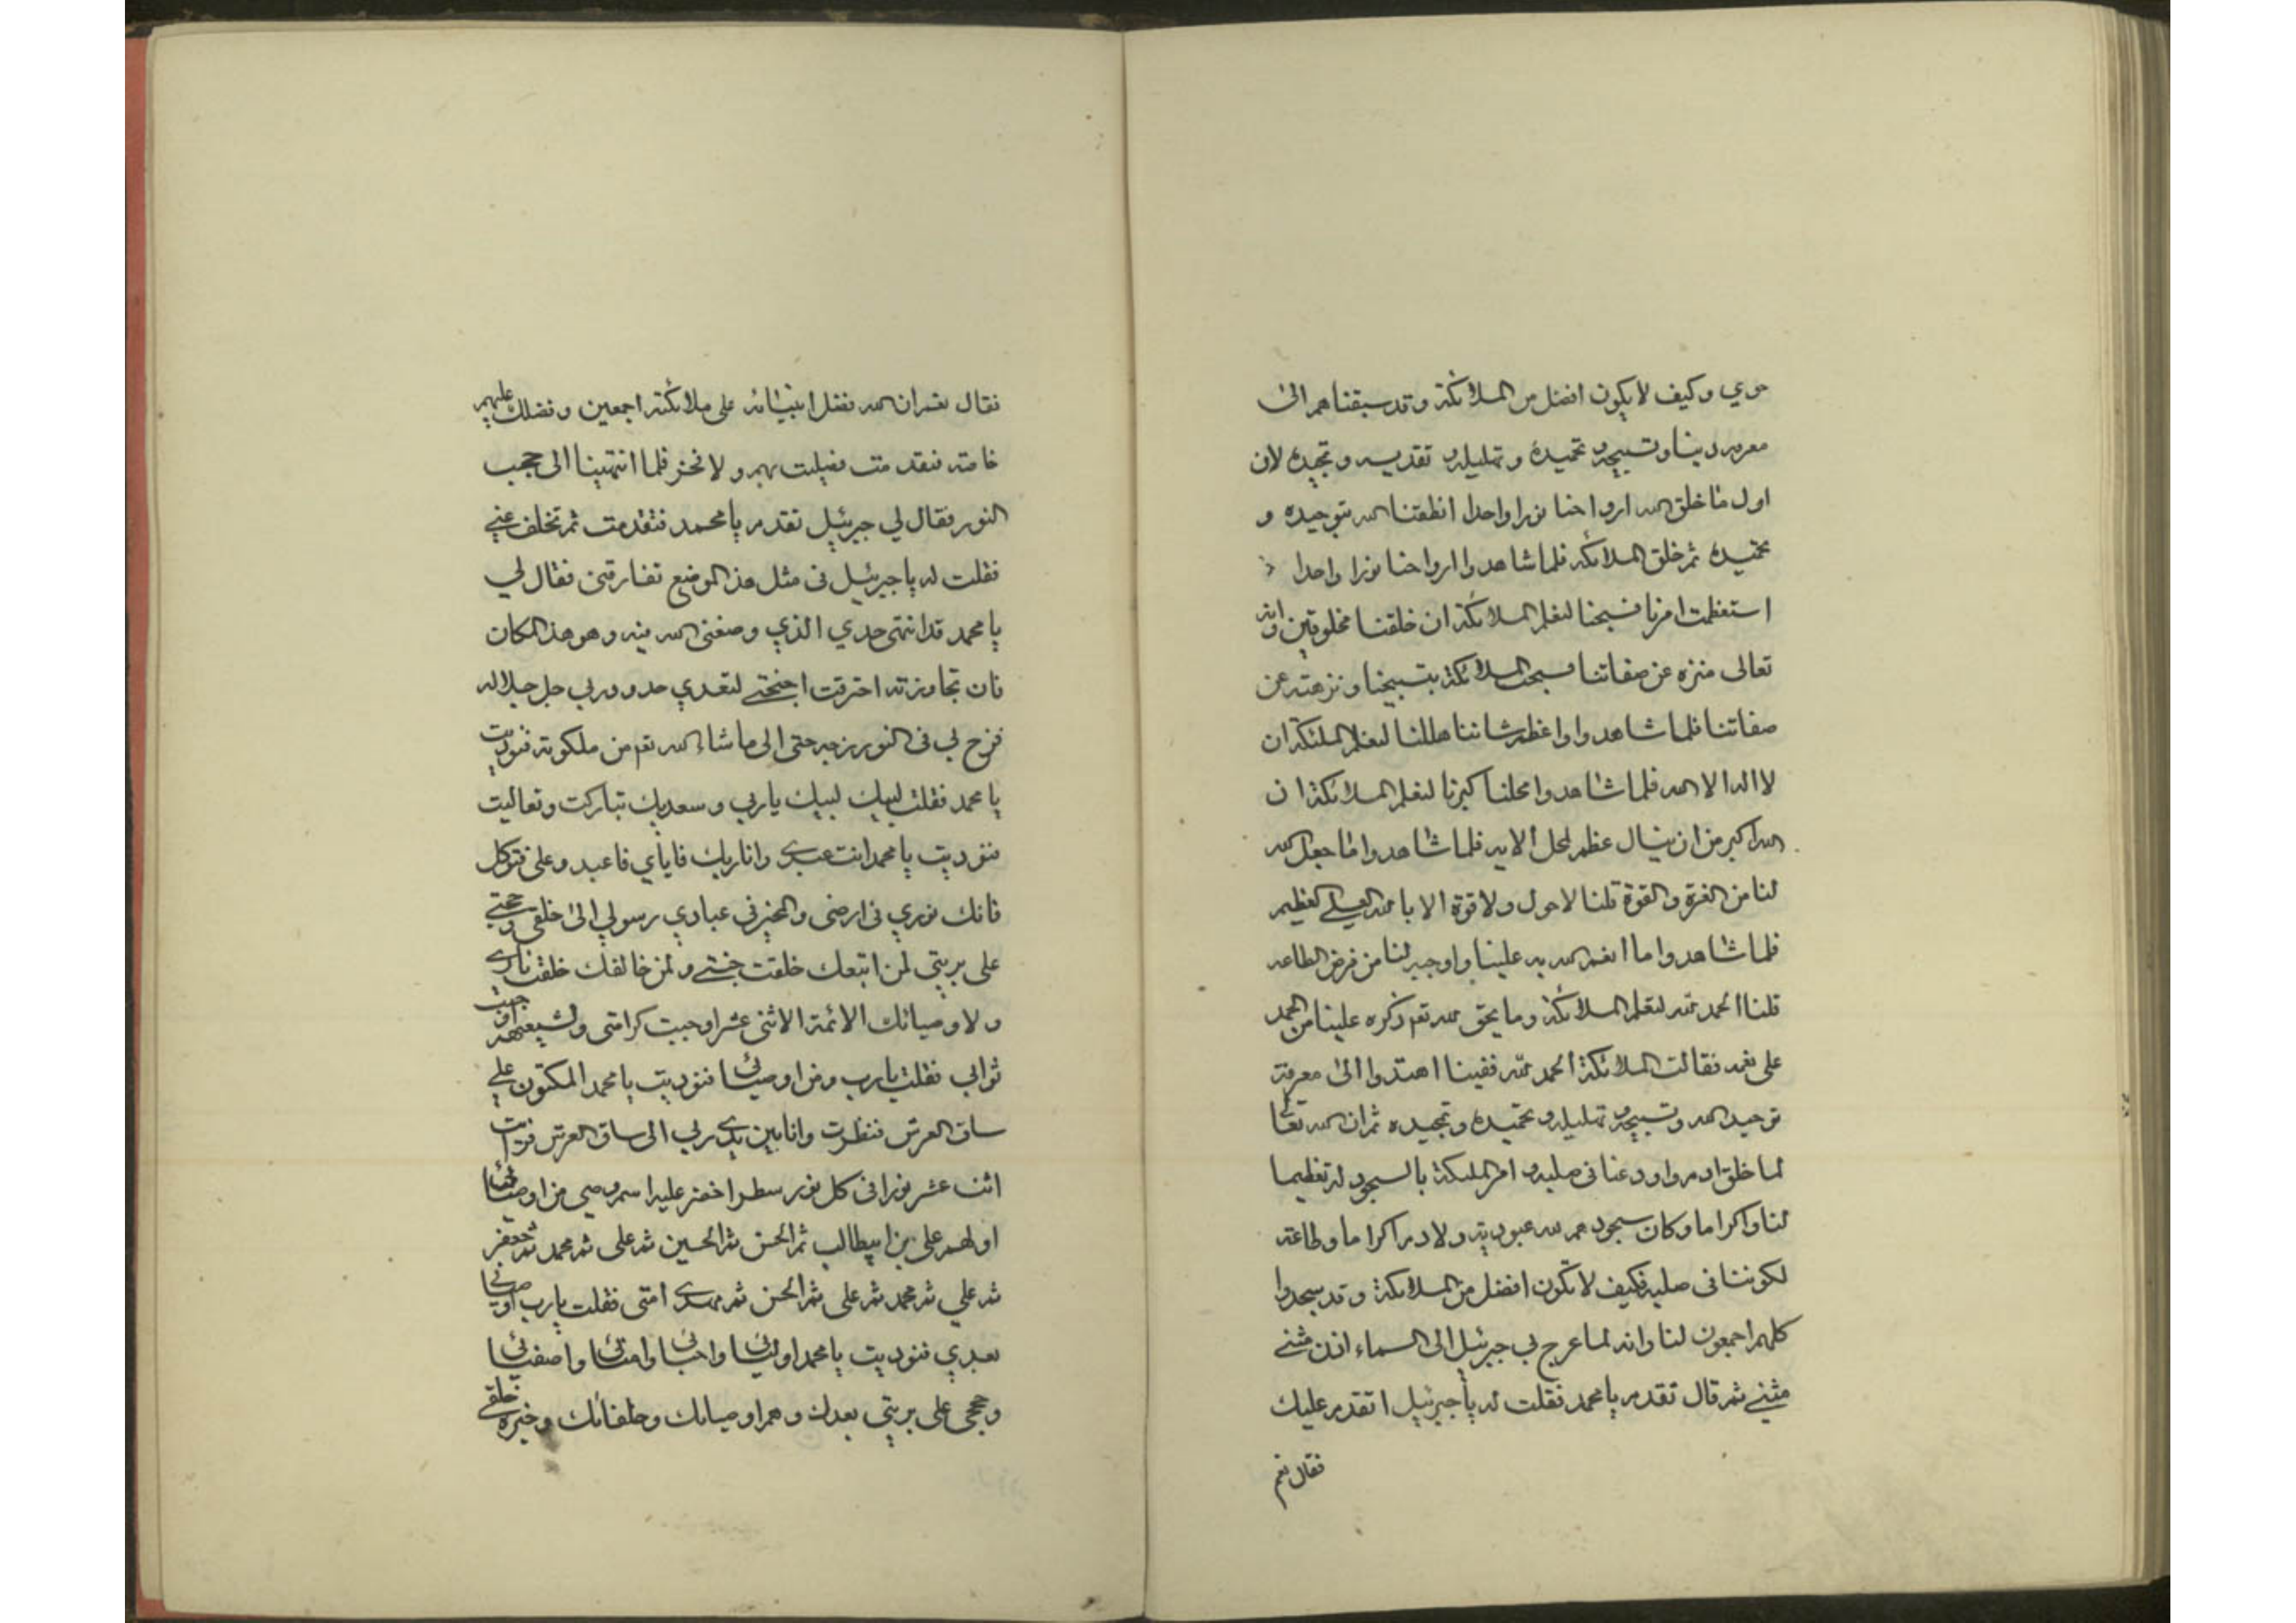 حوي وكيف لا يكون افضل من الملائكة وقد سبقناهم الى
معرفه ربنا وتسبيحه وتحميده وتهليله وتقديسه وتمجيده لان
اول ما خلق الله ارواحنا نورا واحدا انطقنا الله بتوحيده و
تحميده ثم خلق الملائكه فلما شاهدوا ارواحنا نورا واحدا
استعظمت امرنا فسبحنا لتعلم الملائكة ان خلقنا مخلوقين وانه
تعالى منزه عن صفاتنا فسبحت الملائكة بتسبيحنا ونزهته عن
صفاتنا فلما شاهدوا واعظم شاننا هللنا لتعلم الملئكة ان
لا اله الا الله فلما شاهدوا محلنا كبرنا لتعلم الملائكة ان
الله اكبر من ان ينال عظم المحل الا به فلما شاهدوا ما جعل الله
لنا من العزة والقوة قلنا لا حول ولا قوة الا بالله العلي العظيم
فلما شاهدوا ما انعم الله به علينا واوجبه لنا من فرض الطاعه
قلنا الحمد لله لتعلم الملائكة وما يحق لله تعم ذكره علينا من الحمد
على نعمه فقالت الملائكة الحمد لله ففينا اهتدوا الى معرفة
توحيد الله وتسبيحه وتهليله وتحميده وتمجيده ثم ان الله تعالى
لما خلق ادم واودعنا في صلبه وامر الملئكة بالسجود له تعظيما
لنا واكراما وكان سجودهم لله عبودية ولادم اكراما وطاعة
لكوننا في صلبه فكيف لا نكون افضل من الملائكة وقد سجدوا
كلهم اجمعون لنا وانه لما عرج بي جبرئيل الى السماء اذن مثنى
مثنى ثم قال تقدم يا محمد فقلت له يا جبرئيل اتقدم عليك
فقال نعم
فقال نعم ان الله فضل انبيائه على ملائكته اجمعين وفضلك عليهم
خاصة فتقدمت فصليت بهم ولا فخر فلما انتهينا الى حجب
النور فقال لي جبرئيل تقدم يا محمد فتقدمت ثم تخلف عني
فقلت له يا جبرئيل في مثل هذا الموضع تفارقني فقال لي
يا محمد قد انتهى حدي الذي وضعني الله فيه وهو هذا المكان
فان تجاوزته احترقت اجنحتي لتعدي حدود ربي جل جلاله
فزج بي في النور زجه حتى الى ما شاء الله تعم من ملكوته فنوديت
يا محمد فقلت لبيك لبيك يا ربي وسعديك تباركت وتعاليت
فنوديت يا محمد انت عبدي وانا ربك فاياي فاعبد وعلي فتوكل
فانك نوري في ارضي والمخبر في عبادي رسولي الى خلقي وحجتي
على بريتي لمن اتبعك خلقت جنتي ولمن خالفك خلقت ناري
ولاوصيائك الائمة الاثنى عشر اوجبت كرامتي ولشيعتهم اوجبت
ثوابي فقلت يا رب ومن اوصيائي فنوديت يا محمد المكتوبون على
ساق العرش فنظرت وانا بين يدي ربي الى ساق العرش فرايت
اثنا عشر نورا في كل نور سطر اخضر عليه اسم وصي من اوصيائي
اولهم علي بن ابيطالب ثم الحسن ثم الحسين ثم علي ثم محمد ثم جعفر
ثم علي ثم محمد ثم علي ثم الحسن ثم مهدي امتي فقلت يا رب اوصيائي
بعدي فنوديت يا محمد اوليائي واحبائي وامنائي واصفيائي
وحججي على بريتي بعدك وهم اوصيائك وخلفائك وخيرة خلقي